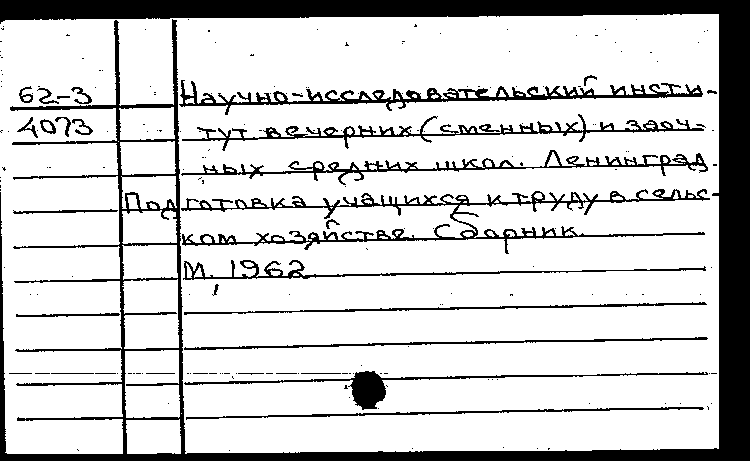 62-3 Научно-исследовательский инсти-
4073 тут вечерних (сменных) и заоч-
ных средних школ. Ленинград.
Подготовка учащихся к труду в сельс-
ком хозяйстве. Сборник.
М., 1962